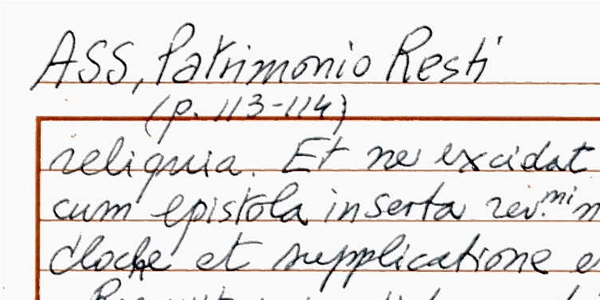 ASS, Patrimonio Resti
(p. 113-114)
reliquia. Et ne excidat
cum epistola inserta rev.mi
et supplicatione